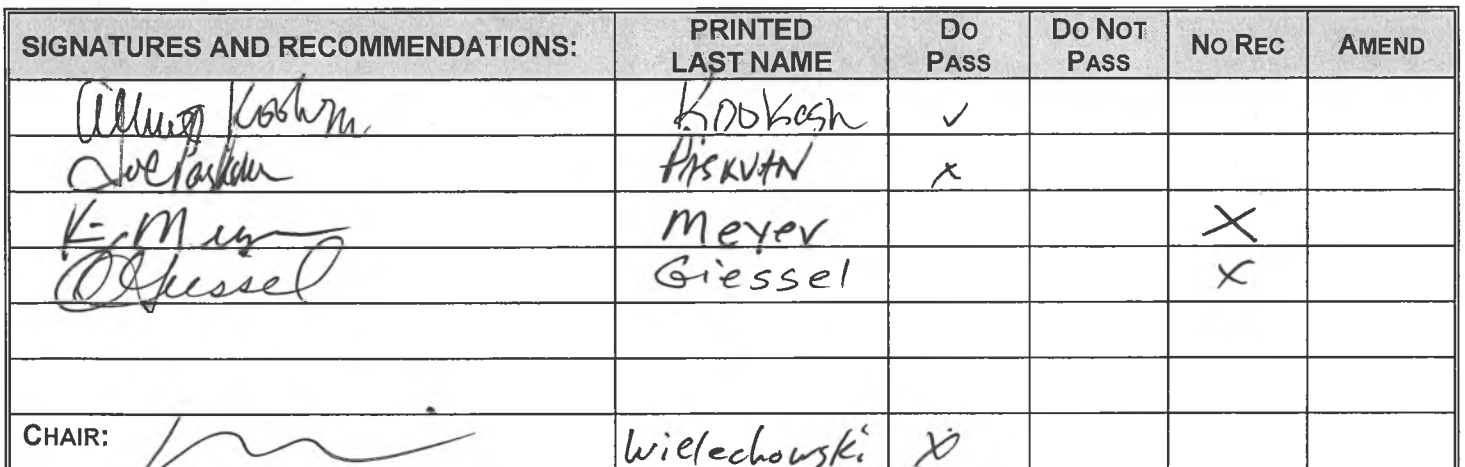 SIGNATURES AND RECOMMENDATIONS: PRINTED LAST NAME DO PASS DO NOT PASS NO REC AMEND
Kookesh ✓
Joe Paskvan PASKVAN x
K. Meyer Meyer X
Giessel Giessel X
CHAIR: Wielechowski X